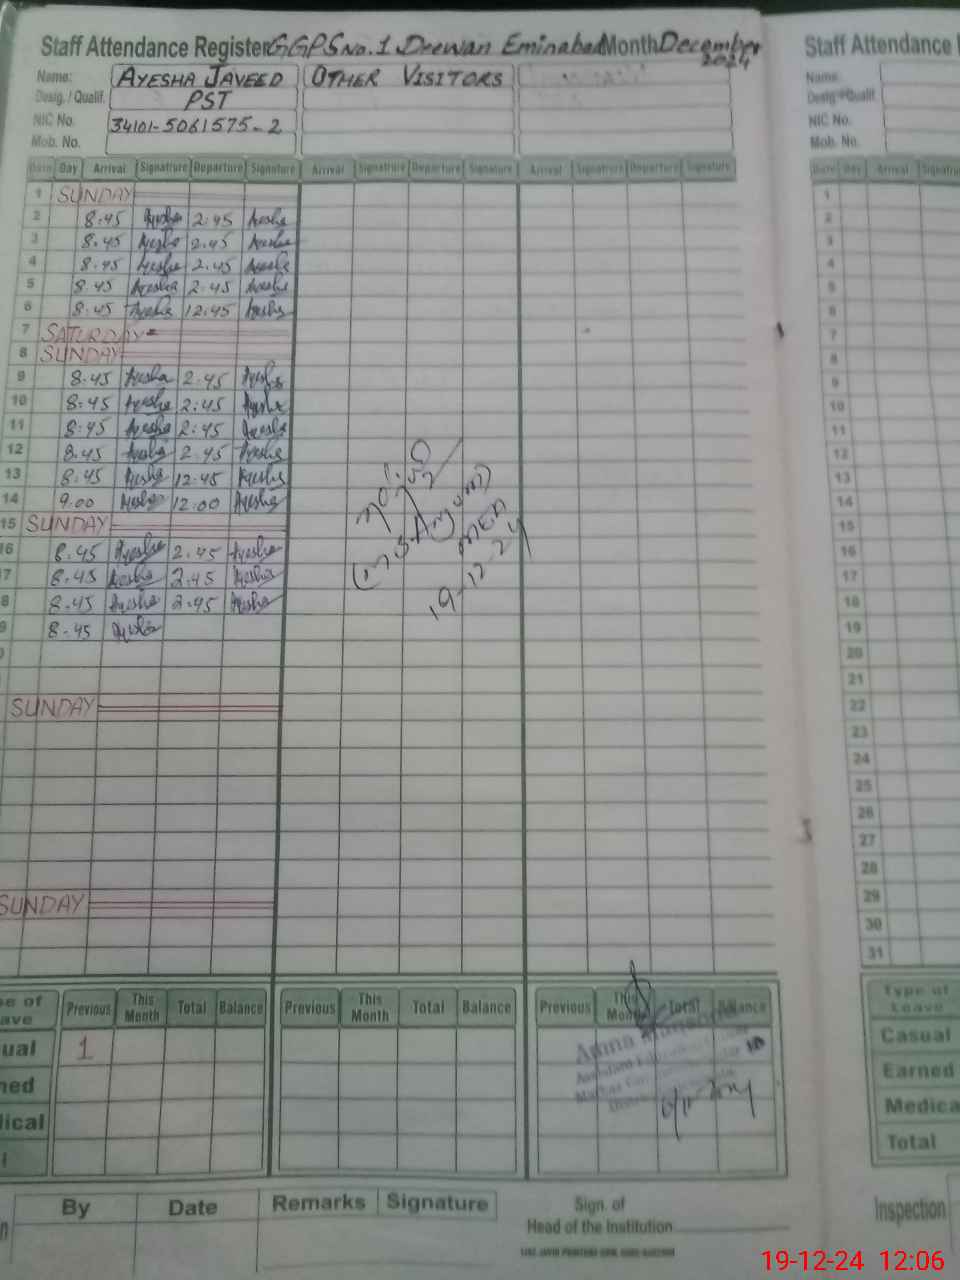 Staff Attendance Register GGPS No.1 Deewan Eminabad Month December 2024
Name: AYESHA JAVEED OTHER VISITORS
Desig. / Qualif. PST
NIC No. 34101-5061575-2
Mob. No.
Date Day Arrival Signature Departure Signature Arrival Signature Departure Signature Arrival Signature Departure Signature
1 SUNDAY
2 8.45 Ayesha 2.45 Ayesha
3 8.45 Ayesha 2.45 Ayesha
4 8.45 Ayesha 2.45 Ayesha
5 8.45 Ayesha 2.45 Ayesha
6 8.45 Ayesha 12.45 Ayesha
7 SATURDAY
8 SUNDAY
9 8.45 Ayesha 2.45 Ayesha
10 8:45 Ayesha 2:45 Ayesha
11 8:45 Ayesha 2:45 Ayesha
12 8.45 Ayesha 2.45 Ayesha
13 8.45 Ayesha 12.45 Ayesha
14 9.00 Ayesha 12.00 Ayesha
15 SUNDAY
16 8.45 Ayesha 2.45 Ayesha
7 8.45 Ayesha 2.45 Ayesha
8 8.45 Ayesha 2.45 Ayesha
9 8.45 Ayesha
MEA
19-12-24
SUNDAY
SUNDAY
Previous This Month Total Balance Previous This Month Total Balance Previous This Month Total Balance
ual 1
ned
lical
By Date Remarks Signature
Sign. of
Head of the Institution
Staff Attendance
Name:
Desig. / Qualif.
NIC No.
Mob. No.
Date Day Arrival
1
2
3
4
5
6
7
8
9
10
11
12
13
14
15
16
17
18
19
20
21
22
23
24
25
26
27
28
29
30
31
Type of Leave
Casual
Earned
Medica
Total
Inspection
19-12-24 12:06